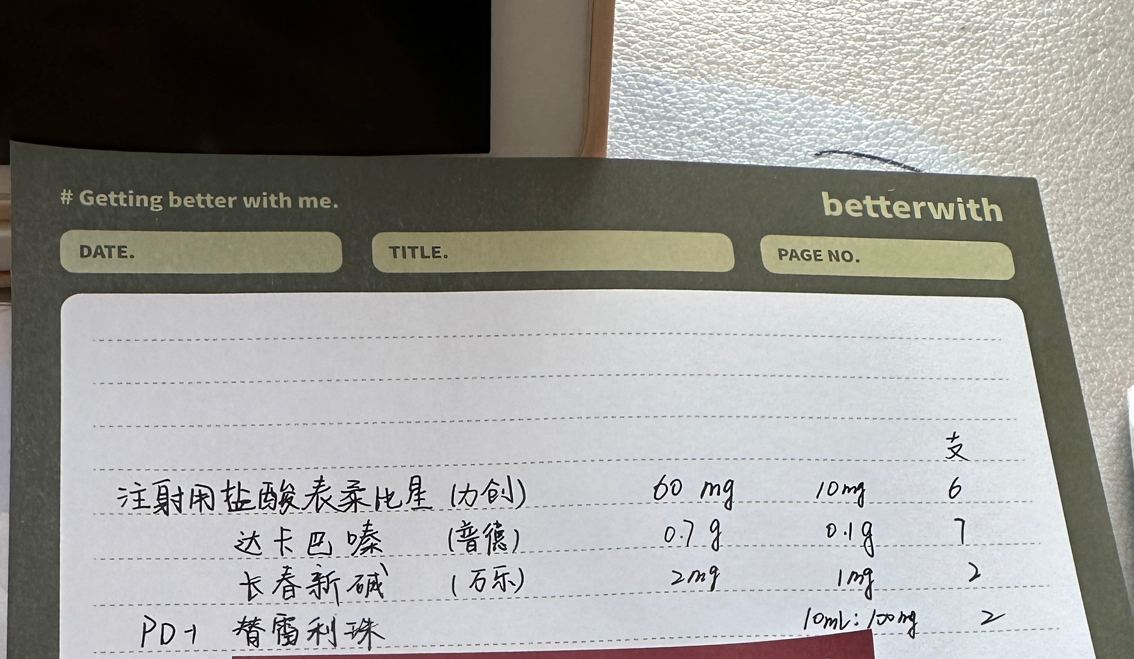 # Getting better with me.
betterwith
DATE. TITLE. PAGE NO.
支
注射用盐酸表柔比星 (力创) 60 mg 10mg 6
达卡巴嗪 (普德) 0.7 g 0.1g 7
长春新碱 (万乐) 2mg 1mg 2
PD-1 替雷利珠 10mL:100mg 2